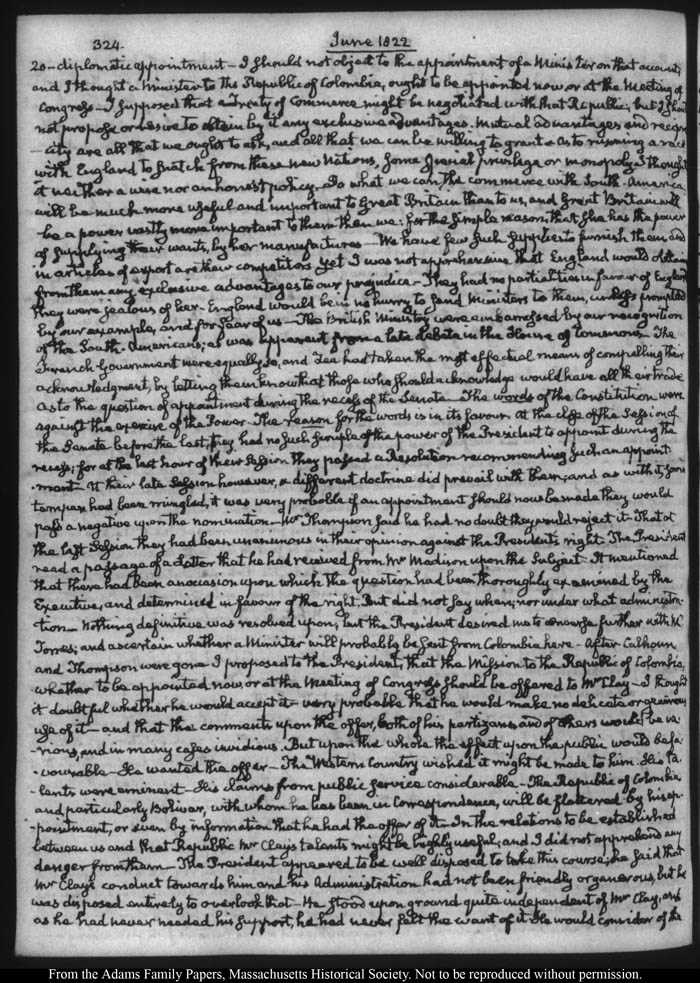 324.
June 1822
20 - diplomatic appointment - I should not object to the appointment of a Minister on that account,
and I thought a Minister to the Republic of Colombia, ought to be appointed now or at the Meeting of
Congress - I supposed that a Treaty of Commerce might be negotiated with that Republic; but I should
not propose or desire to obtain by it any exclusive advantages. Mutual advantages and recipro
-city are all that we ought to ask, and all that we can be willing to grant - As to running a race
with England to snatch from these new Nations, some special privilege or monopoly I thought
it neither a wise nor an honest policy. Do what we can, the commerce with South-America
will be much more useful and important to Great Britain than to us, and Great Britain will
be a power vastly more important to them than we: for the simple reason, that she has the power
of supplying their wants, by her manufactures - We have few such supplies to furnish them, and
in articles of export are their competitors. Yet I was not apprehensive that England would obtain
from them any exclusive advantages to our prejudice - They had no partialities in favour of England
They were jealous of her - England would be in no hurry to send Ministers to them, unless prompted
by our example, and for fear of us - The British Ministry were embarrassed by our recognition
of the South-Americans; as was apparent from a late debate in the House of Commons. The
French Government were equally so, and Zea had taken the most effectual means of compelling their
acknowledgment, by letting them know that those who should acknowledge would have all their trade
As to the question of appointment during the recess of the Senate - The words of the Constitution were
against the exercise of the Power - The reason for the words is in its favour. At the close of the Session of
the Senate before the last, they had no such scruple of the power of the President to appoint during the
recess; for at the last hour of their Session they passed a Resolution recommending such an appoint
-ment - At their late Session however, a different doctrine did prevail with them; and as with it, some
temper had been mingled, it was very probable if an appointment should now be made they would
pass a negative upon the nomination - Mr Thompson said he had no doubt they would reject it - That at
the last Session they had been unanimous in their opinion against the President's right - The President
read a passage of a letter that he had received from Mr Madison upon the subject - It mentioned
that there had been an occasion upon which the question had been thoroughly examined by the
Executive, and determined in favour of the right. But did not say when; nor under what administra-
tion - Nothing definitive was resolved upon; but the President desired me to converse further with Mr
Torres; and ascertain whether a Minister will probably be sent from Colombia here - After Calhoun
and Thompson were gone I proposed to the President, that the Mission to the Republic of Colombia,
whether to be appointed now or at the Meeting of Congress should be offered to Mr Clay - I thought
it doubtful whether he would accept it - very probable that he would make no delicate or generous
use of it - and that the comments upon the offer, both of his partizans and of others would be va
-rious, and in many cases invidious. But upon the whole the effect upon the public would be fa
-vourable - He wanted the offer - The Western Country wished it might be made to him - His ta
-lents were eminent - His claims from public service considerable - The Republic of Colombia
and particularly Bolivar, with whom he has been in correspondence, will be flattered by his ap
-pointment, or even by information that he had the offer of it - In the relations to be established
between us and that Republic Mr Clay's talents might be highly useful; and I did not apprehend any
danger from them - The President appeared to be well disposed to take this course; he said that
Mr Clay's conduct towards him and his Administration had not been friendly or generous, but he
was disposed entirely to overlook that - He stood upon ground quite independent of Mr Clay, and
as he had never needed his support, he had never felt the want of it. He would consider of the
From the Adams Family Papers, Massachusetts Historical Society. Not to be reproduced without permission.